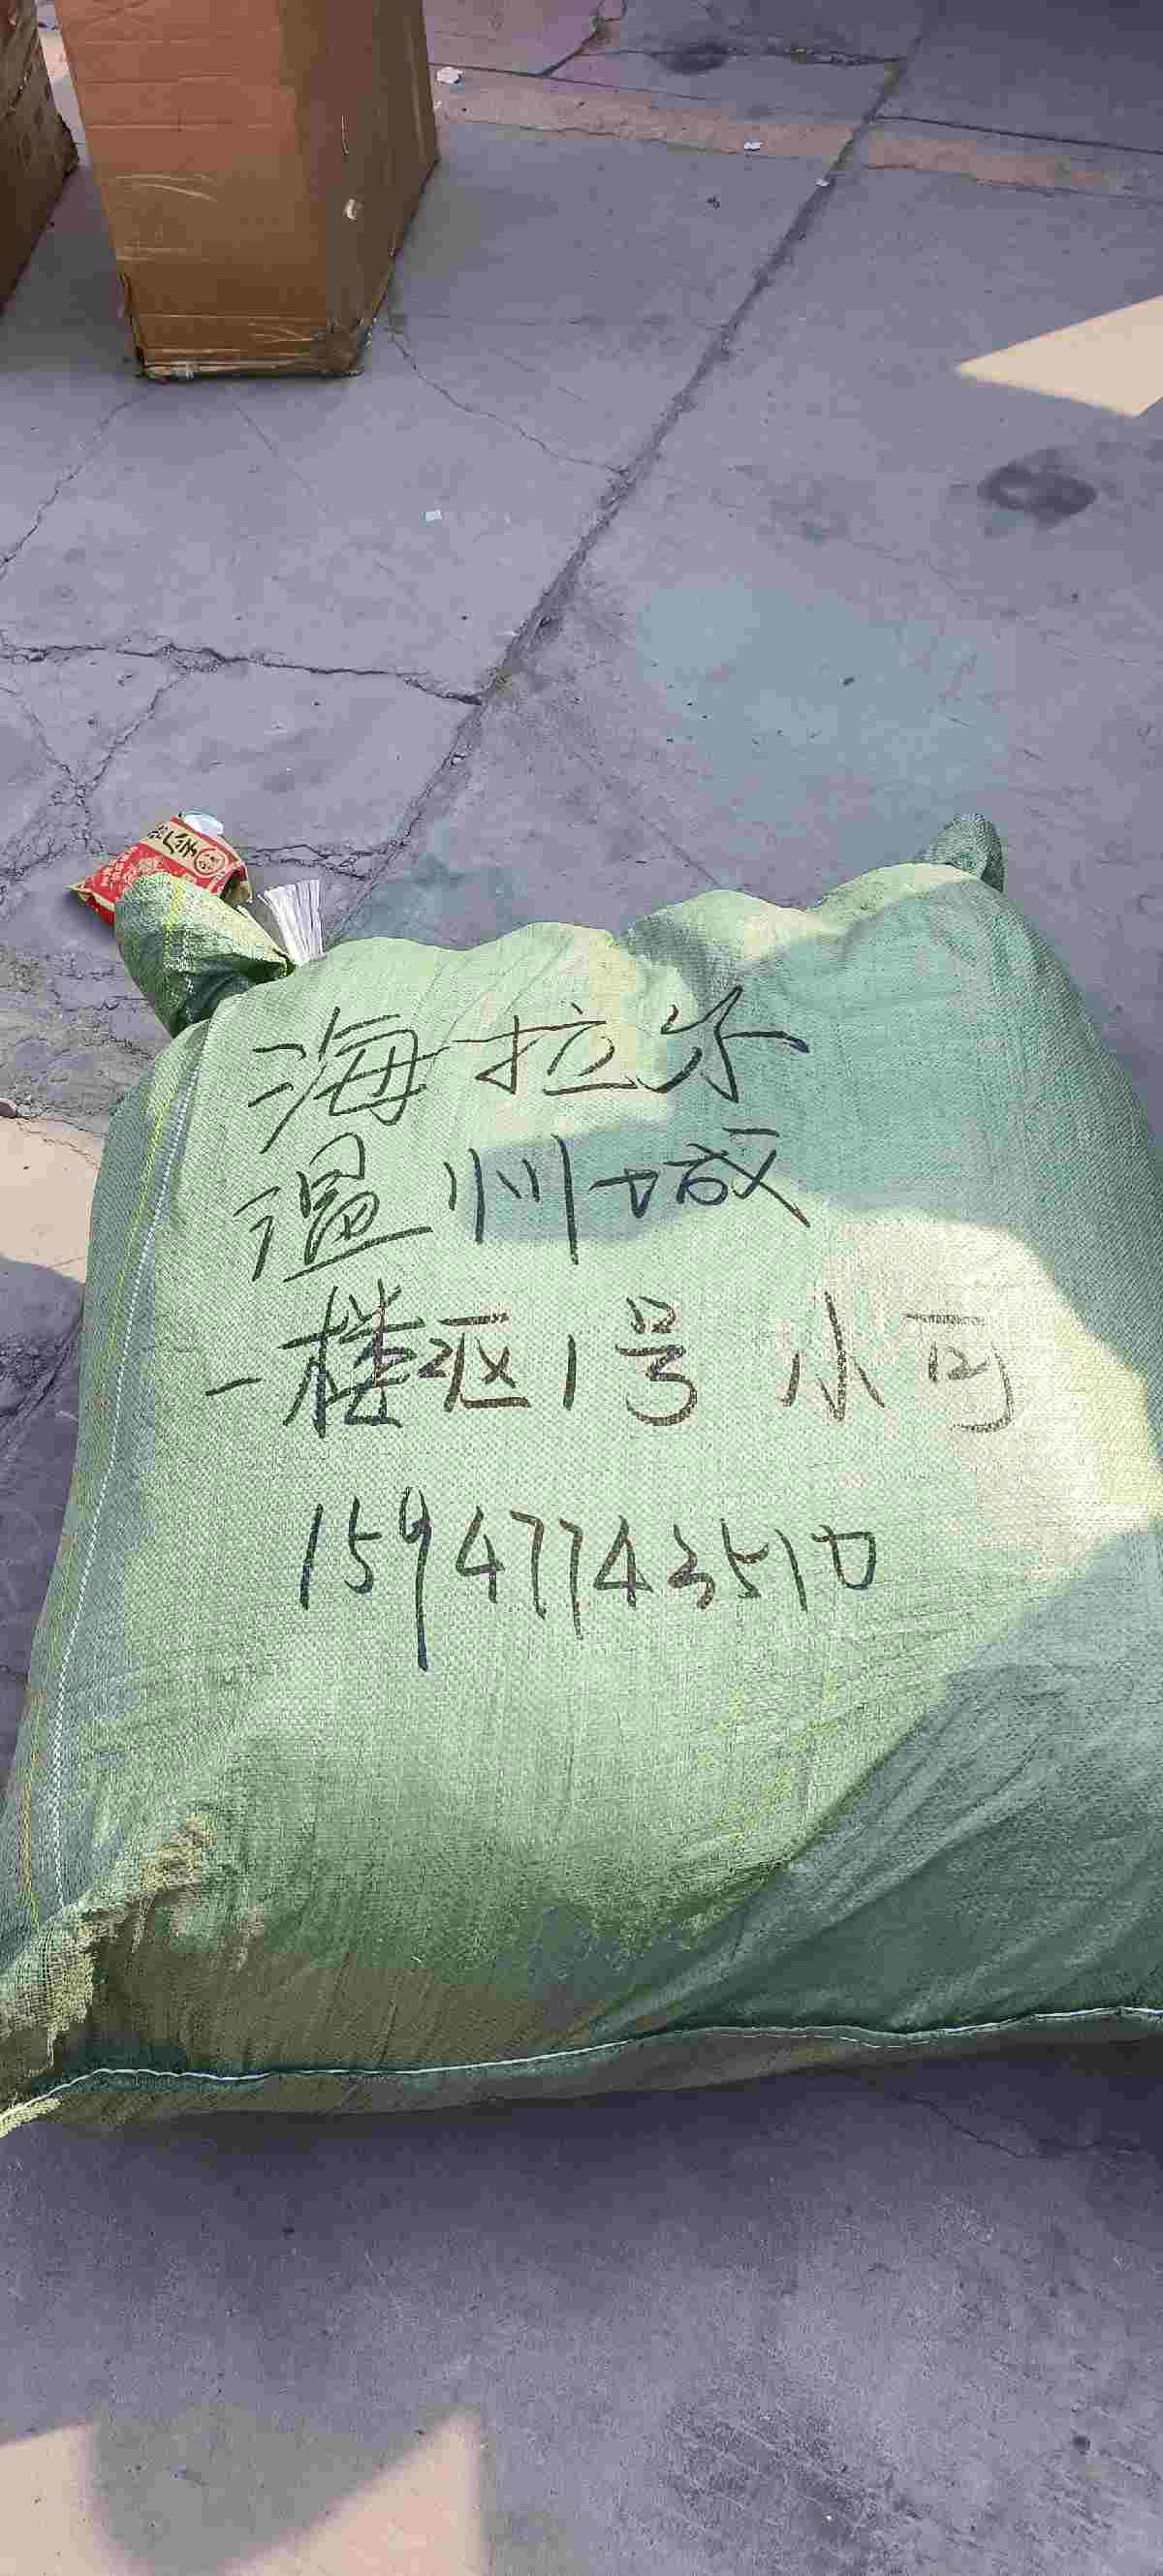 海拉尔
温州城
一楼西区1号 小可
15947743510